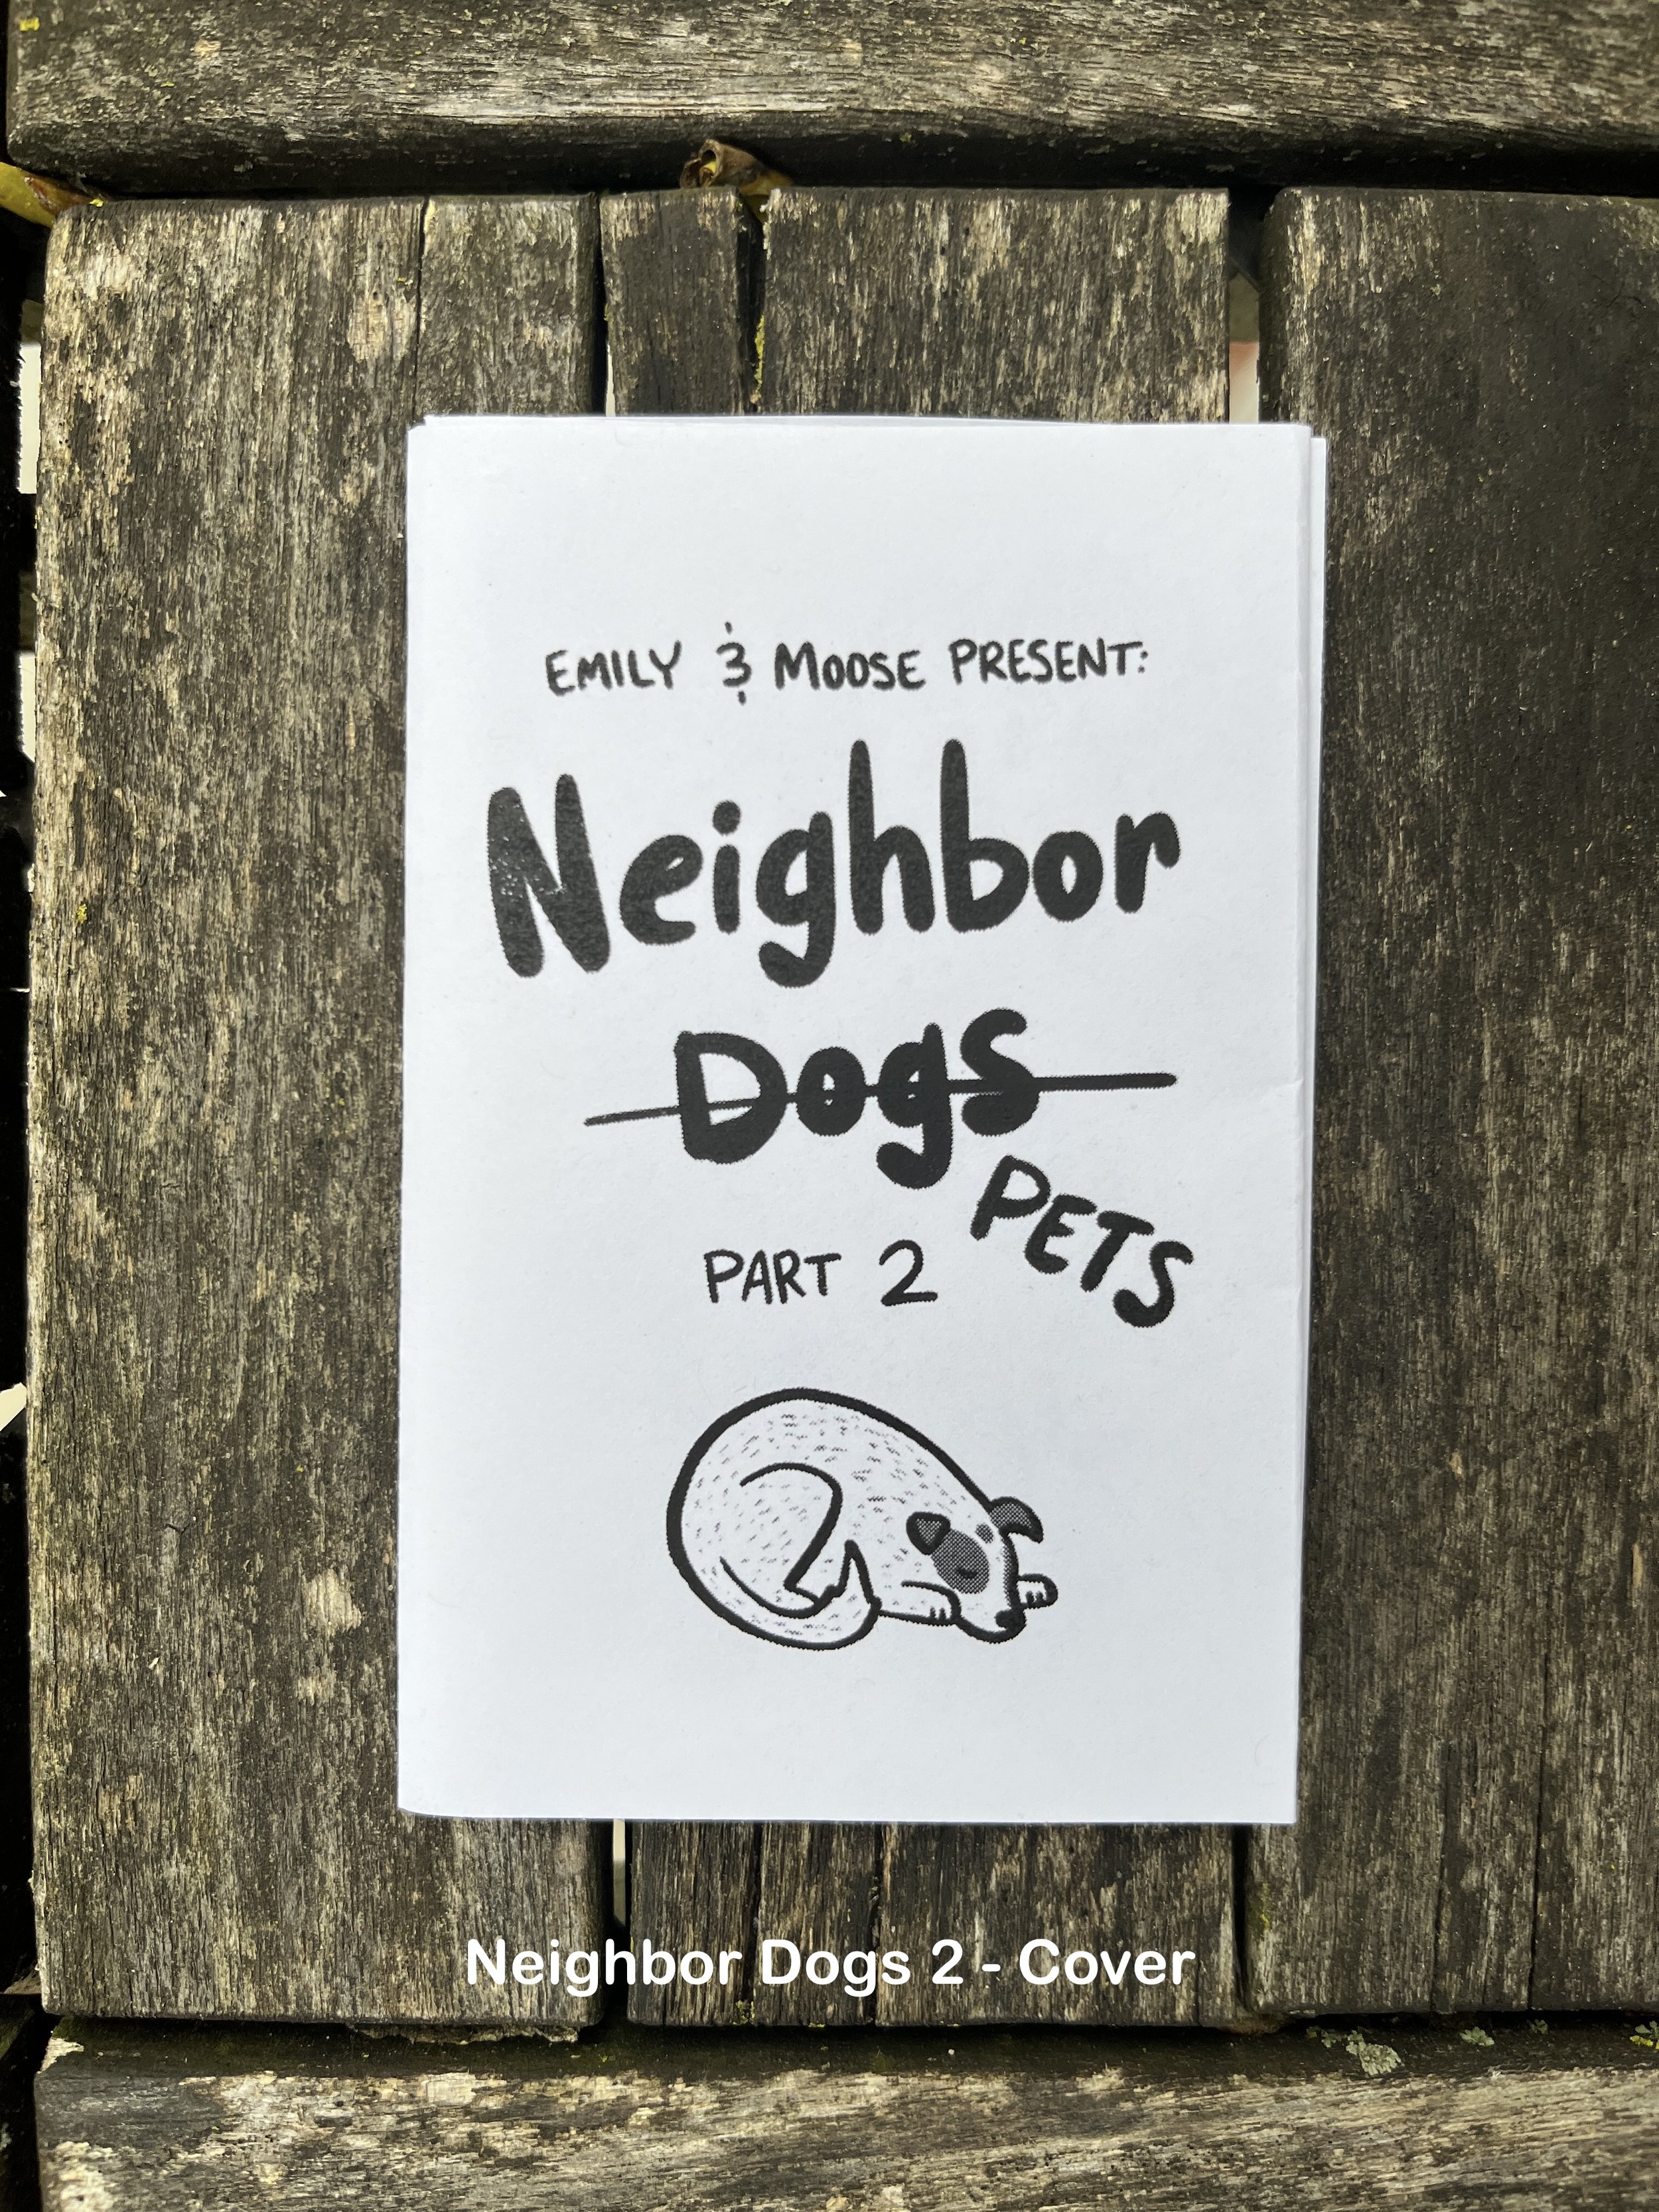 EMILY & MOOSE PRESENT:
Neighbor
Dogs
PETS
PART 2
Neighbor Dogs 2 - Cover